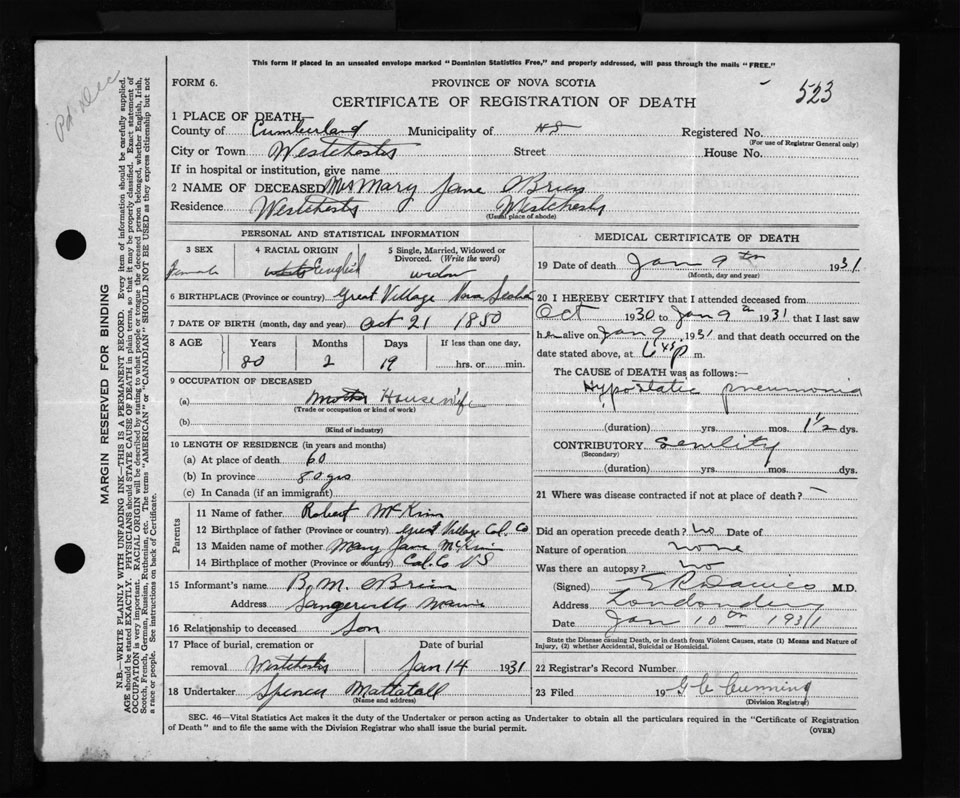 This form if placed in an unsealed envelope marked "Dominion Statistics Free," and properly addressed, will pass through the mails "FREE."
FORM 6.
PROVINCE OF NOVA SCOTIA
523
CERTIFICATE OF REGISTRATION OF DEATH
1 PLACE OF DEATH
County of Cumberland Municipality of Registered No.
(For use of Registrar General only)
City or Town Westchester Street House No.
If in hospital or institution, give name
2 NAME OF DECEASED Mrs Mary Jane O'Brien
Residence Westchester Westchester
(Usual place of abode)
PERSONAL AND STATISTICAL INFORMATION
3 SEX 4 RACIAL ORIGIN 5 Single, Married, Widowed or Divorced. (Write the word)
Female white English widow
6 BIRTHPLACE (Province or country) Great Village Nova Scotia
7 DATE OF BIRTH (month, day and year) Oct 21 1850
8 AGE Years Months Days If less than one day,
80 2 19 hrs. or min.
9 OCCUPATION OF DECEASED
(a) Housewife
(Trade or occupation or kind of work)
(b)
(Kind of industry)
10 LENGTH OF RESIDENCE (in years and months)
(a) At place of death 60
(b) In province 80 yrs
(c) In Canada (if an immigrant)
Parents
11 Name of father Robert McKim
12 Birthplace of father (Province or country) Great Village Col. Co
13 Maiden name of mother Mary Jane McKim
14 Birthplace of mother (Province or country) Col. Co NS
15 Informant's name B. M. O'Brien
Address Sangerville Maine
16 Relationship to deceased Son
17 Place of burial, cremation or Date of burial
removal Westchester Jan 14 1931
18 Undertaker Spencer Mattatall
(Name and address)
MEDICAL CERTIFICATE OF DEATH
19 Date of death Jan 9th 1931
(Month, day and year)
20 I HEREBY CERTIFY that I attended deceased from
Oct 1930 to Jan 9th 1931 that I last saw
her alive on Jan 9 1931 and that death occurred on the
date stated above, at p m.
The CAUSE of DEATH was as follows:
Hypostatic pneumonia
(duration) yrs. mos. 1½ dys.
CONTRIBUTORY Senility
(Secondary)
(duration) yrs. mos. dys.
21 Where was disease contracted if not at place of death? –
Did an operation precede death? no Date of
Nature of operation none
Was there an autopsy? no
(Signed) E R Davies M.D.
Address Londonderry
Date Jan 10th 1931
State the Disease causing Death, or in death from Violent Causes, state (1) Means and Nature of
Injury, (2) whether Accidental, Suicidal or Homicidal.
22 Registrar's Record Number
23 Filed 19 Cumming
(Division Registrar)
SEC. 46—Vital Statistics Act makes it the duty of the Undertaker or person acting as Undertaker to obtain all the particulars required in the "Certificate of Registration
of Death" and to file the same with the Division Registrar who shall issue the burial permit.
(OVER)
MARGIN RESERVED FOR BINDING
N.B.—WRITE PLAINLY WITH UNFADING INK—THIS IS A PERMANENT RECORD. Every item of information should be carefully supplied.
AGE should be stated EXACTLY. PHYSICIANS should STATE CAUSE OF DEATH in plain terms, so that it may be properly classified. Exact statement of
OCCUPATION is very important. RACIAL ORIGIN will be described by stating to what people or tongue the deceased person belonged, whether English, Irish,
Scotch, French, German, Russian, Ruthenian, etc. The terms "AMERICAN" or "CANADIAN" SHOULD NOT BE USED as they express citizenship but not
a race or people. See instructions on back of Certificate.